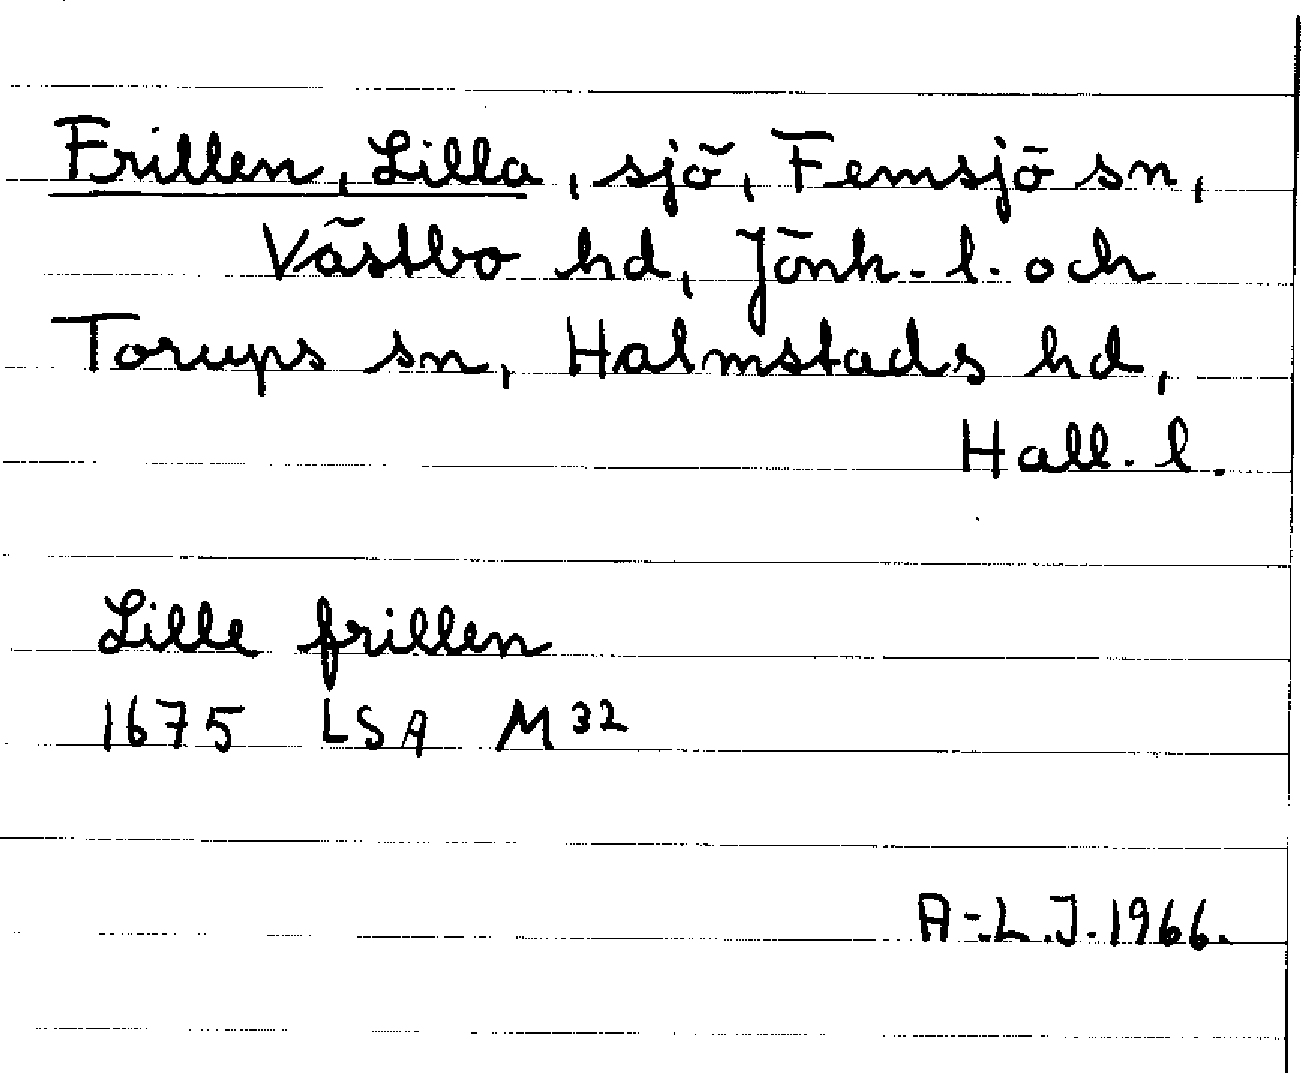 Frillen, Lilla, sjö, Femsjö sn,
Västbo hd, Jönk. l. och
Torups sn, Halmstads hd,
Hall. l.
Lille frillen
1675 LSA M 32
A-L.J. 1966.